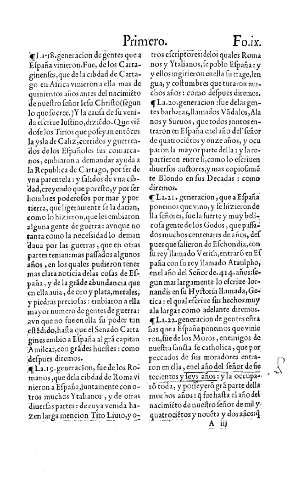 Primero.
Fo.ix.
¶La .18. generacion de gentes que a
España vinieron. Fue, de los Carta-
ginenses, que de la cibdad de Carta-
go en Africa vinieron a ella mas de
quinientos años antes del nacimien-
to de nuestro señor Iesu Christo (segun
lo que se escriue,) Y la causa de su ve-
nida escriue Iustino, diziendo. Que vi-
dose los Tirios que poseyan entonces
la ysla de Caliz, corridos y guerrea-
dos de los Españoles sus comarca-
nos, embiaron a demandar ayuda a
la Republica de Cartago, por ser de
vna parentela; y salidos de vna cib-
dad, creyendo que por esto, y por ser
hombres poderosos por mar y por
tierra, que ligeramente la darian,
como lo hizieron, que les embiaron
alguna gente de guerra: aunque no
tanta como la necesidad lo deman
daua por las guerras, que en otras
partes tenian mas pasados algunos
años, en los quales pudieron tener
mas clara noticia de las cosas de Es-
paña, y de la grãde abundancia que
en ella auia, de oro y plata, metales,
y piedras preciosas: embiaron a ella
mayor numero de gentes de guerra:
avn que no fue en ella su poder tan
estẽdido, hasta que el Senado Carta
gines embio a España al grã capitan
Amilcar, con grãdes huestes: como
despues diremos.
¶La .19. generacion fue, de los Ro-
manos, que dela cibdad de Roma vi
nieron a España, juntamente con o-
tros muchos Ytalianos, y de otras
diuersas partes: de cuya venida ha-
zen larga mencion Tito Liuio, y o-
tros escriptores: de los quales Roma
nos y Ytalianos, se poblo España: y
y ellos ingirieron en ella su trage, len
gua, y costumbres que turaron mu-
chos años: como despues diremos.
¶La .20. generacion fue de las gen-
tes barbaras, llamados Vãdalos, Ala-
nos y Sueuos, que todos juntos en-
traron en España en el año del señor
de quatrocientos y onze años, y ocu
paron la mayor parte della: y la ro-
partieron entre si, como lo escriuen
diuersos auctores, y mas copiosamẽ
te Blondo en sus Decadas: como
diremos.
¶La .21. generacion, que a España
ponemos que vino, y se hizieron de
lla señores, fue la fuerte y muy belli-
cosa gente de los Godos, que passa-
dos muchos centenares de años, des
pues que salieron de Eschondia, con
su rey llamado Verich, entraro en Es
paña con su rey llamado Ataulpho,
en el año del Señor de .424. años: se-
gun mas largamente lo escriue Ior-
nandis en su Hystoria llamada, Ge-
tica: el qual escriue sus hechos muy
a la larga: como adelante diremos.
¶La .22. generacion de gentes estra
ñas que a España ponemos que vinie
ron, fue de los Moros, enemigos de
nuestra sancta fe catholica, que por
peccados de sus moradores entra-
ron en ella, en el año del señor de sie
tecientos y seys años: y la occupa-
rõ toda, y posseyerõ grã parte della
muchos años: q̃ fue hasta el año del
nacimiẽto de nuestro señor de mil y
quatrociẽtos y nouẽta y dos años: q̃
A iij